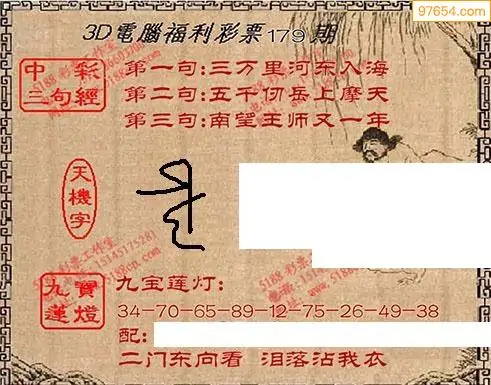 97654.com
3D電腦福利彩票179期
中彩三句經
第一句:三万里河东入海
第二句:五千仞岳上摩天
第三句:南望王师又一年
天機字
九寶蓮燈
九宝莲灯:
34-70-65-89-12-75-26-49-38
配:
二门东向看 泪落沾我衣